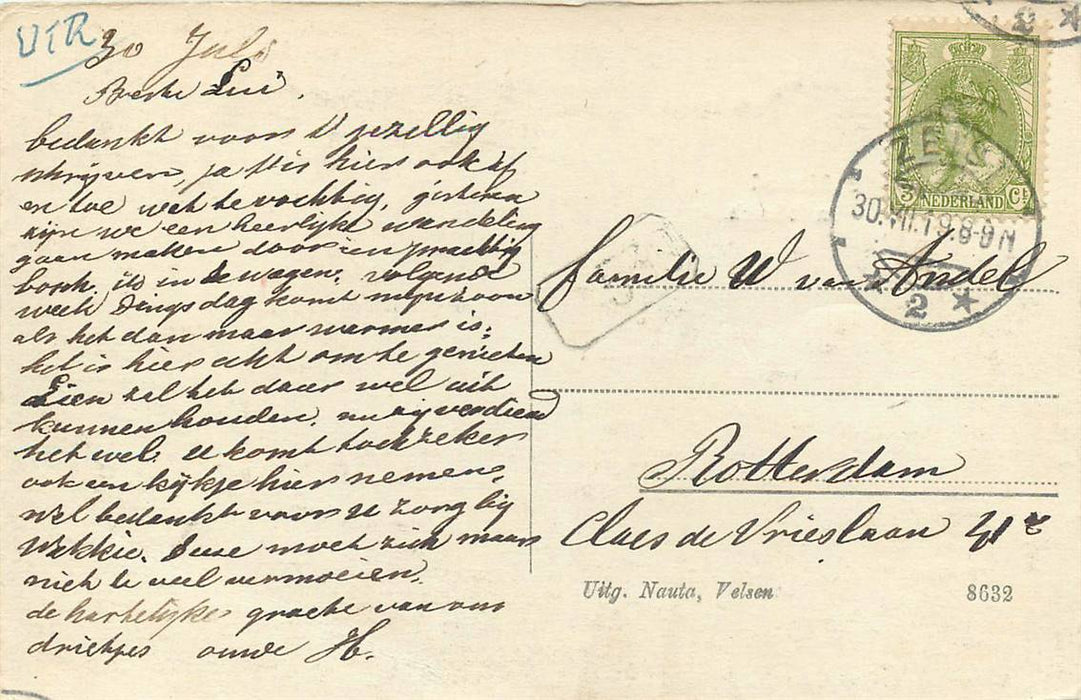 UTR
30 Juli
Beste Lui,
bedankt voor U gezellig
schrijven, ja 't is hier ook af
en toe wat te vochtig, gisteren
zijn we een heerlijke wandeling
gaan maken door een prachtig
bosch, ik in de wagen. volgende
week Dingsdag komt mijn zoon
als het dan maar warmer is,
het is hier echt om te genieten
Lien zal het daar wel uit
kunnen houden, nu zij verdiend
het wel. U komt toch zeker
ook een kijkje hier nemen,
wel bedankt voor U zorg bij
moet zich maar
niet te veel vermoeien.
de hartelijke groete van ons
drietjes ouwe H.
3 NEDERLAND Ct
ZEIST
30.VII.19.8-9N
2
2
Familie W van Andel
Rotterdam
Claes de Vrieslaan 41
Uitg. Nauta, Velsen
8632